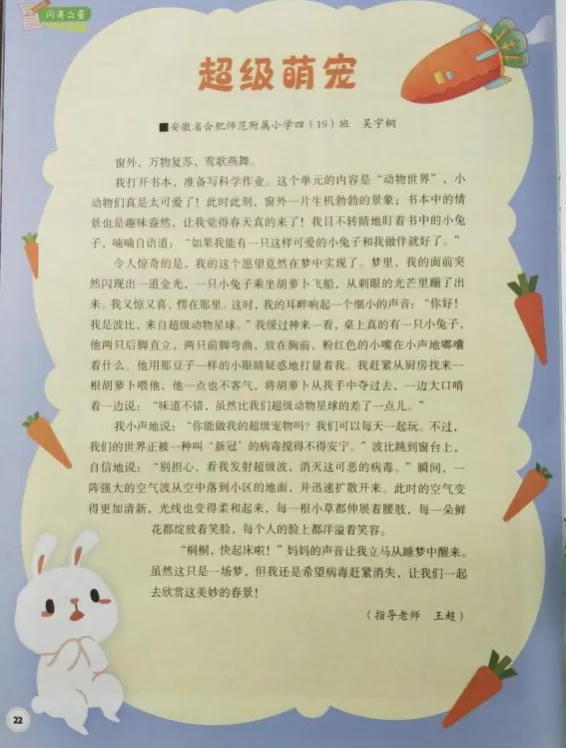 闪亮之星
超级萌宠
■安徽省合肥师范附属小学四（19）班 吴宇桐
窗外，万物复苏，莺歌燕舞。
我打开书本，准备写科学作业。这个单元的内容是“动物世界”，小
动物们真是太可爱了！此时此刻，窗外一片生机勃勃的景象；书本中的情
景也是趣味盎然，让我觉得春天真的来了！我目不转睛地盯着书中的小兔
子，喃喃自语道：“如果我能有一只这样可爱的小兔子和我做伴就好了。”
令人惊奇的是，我的这个愿望竟然在梦中实现了。梦里，我的面前突
然闪现出一道金光，一只小兔子乘坐胡萝卜飞船，从刺眼的光芒里蹦了出
来。我又惊又喜，愣在那里。这时，我的耳畔响起一个细小的声音：“你好！
我是波比，来自超级动物星球。”我缓过神来一看，桌上真的有一只小兔子，
他两只后脚直立，两只前脚弯曲，放在胸前，粉红色的小嘴在小声地嘟囔
着什么。他用那豆子一样的小眼睛疑惑地打量着我。我赶紧从厨房找来一
根胡萝卜喂他，他一点也不客气，将胡萝卜从我手中夺过去，一边大口啃
着一边说：“味道不错，虽然比我们超级动物星球的差了一点儿。”
我小声地说：“你能做我的超级宠物吗？我们可以每天一起玩。不过，
我们的世界正被一种叫‘新冠’的病毒搅得不得安宁。”波比跳到窗台上，
自信地说：“别担心，看我发射超级波，消灭这可恶的病毒。”瞬间，一
阵强大的空气波从空中落到小区的地面，并迅速扩散开来。此时的空气变
得更加清新，光线也变得柔和起来，每一根小草都伸展着腰肢，每一朵鲜
花都绽放着笑脸，每个人的脸上都洋溢着笑容。
“桐桐，快起床啦！”妈妈的声音让我立马从睡梦中醒来。
虽然这只是一场梦，但我还是希望病毒赶紧消失，让我们一起
去欣赏这美妙的春景！
（指导老师 王超）
22